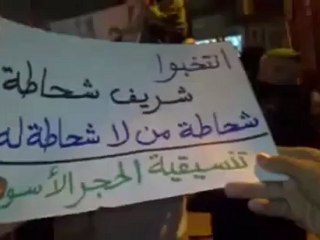 انتخبوا
شريف شحاطة
شحاطة من لا شحاطة له
تنسيقية الحجر الأسو